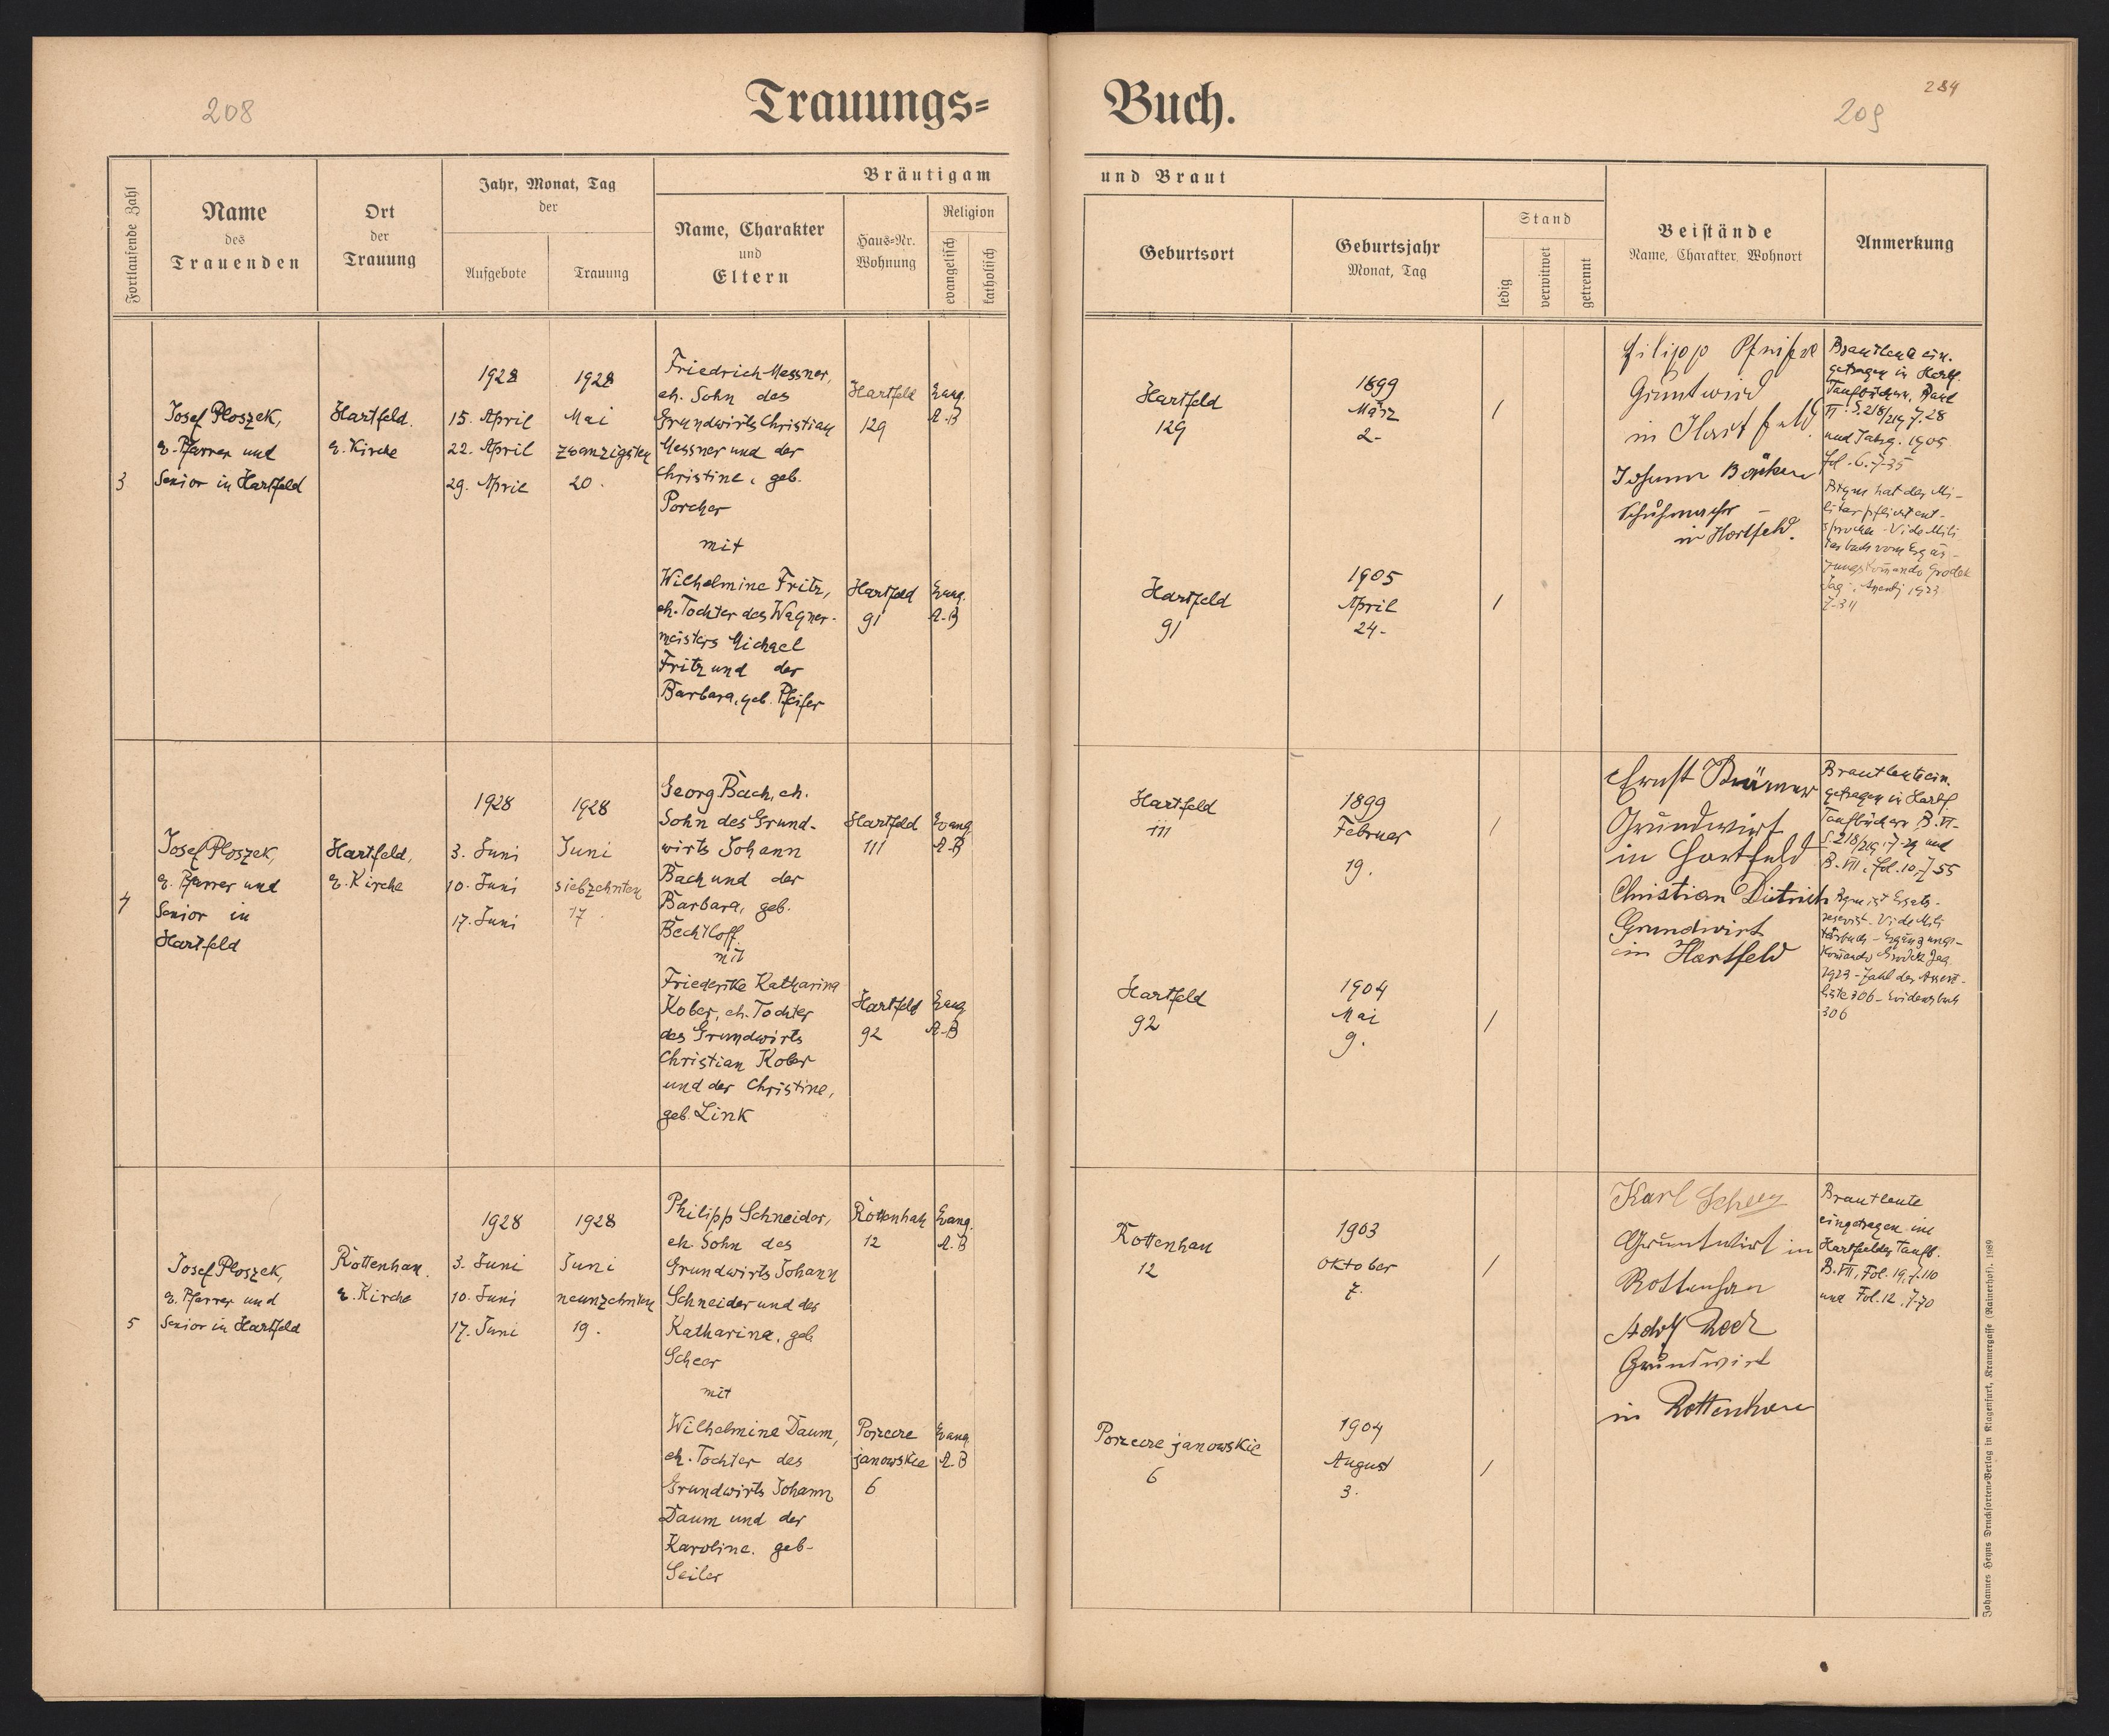 208
Trauungs=
Buch.
284
209
Fortlaufende Zahl
Name
des
Trauenden
Ort
der
Trauung
Jahr, Monat, Tag
der
Aufgebote
Trauung
Bräutigam
und Braut
Name, Charakter
und
Eltern
Haus=Nr.
Wohnung
Religion
evangelisch
katholisch
Geburtsort
Geburtsjahr
Monat, Tag
Stand
ledig
verwitwet
getrennt
Beistände
Name, Charakter, Wohnort
Anmerkung
3
Josef Ploszek,
e. Pfarrer und
Senior in Hartfeld
Hartfeld.
e. Kirche
1928
15. April
22. April
29. April
1928
Mai
zwanzigsten
20.
Friedrich Messner,
eh. Sohn des
Grundwirts Christian
Messner und der
Christine, geb.
Porcher
mit
Wilhelmine Fritz,
eh. Tochter des Wagner-
meisters Michael
Fritz und der
Barbara, geb. Pfeifer
Hartfeld
129
Evang.
A.B
Hartfeld
91
Evang.
A.B
Hartfeld
129
1899
März
2.
/
Hartfeld
91
1905
April
24.
/
Filipp
Gruntwird
in Hartfeld
Johann
Schuhmacher
in Hartfeld.
Brautleute ein.
getragen in Hartf.
Taufbüchern. Band
VI. S. 218/219 Z. 28
und Jahrg. 1905
Fol. 6. Z. 35
hat der Mi-
litärpflicht ent-
Vide Mili
Grodek
Jag.
1923
4
Josef Ploszek,
e. Pfarrer und
Senior in
Hartfeld
Hartfeld,
e. Kirche
1928
3. Juni
10. Juni
17. Juni
1928
Juni
siebzehnten
17.
Georg Bach, eh.
Sohn des Grund-
wirts Johann
Bach und der
Barbara, geb.
Bechtloff
mit
Friederike Katharina
Kober, eh. Tochter
des Grundwirts
Christian Kober
und der Christine,
geb. Link
Hartfeld
111
Evang
A.B
Hartfeld
92
Evang
A.B
Hartfeld
111
1899
Februar
19.
/
Hartfeld
92
1904
Mai
9.
/
Ernst
Grundwirt
in Hartfeld
Christian Dietrich
Grundwirt
in Hartfeld
Brautleute ein.
getragen in Hartf
Taufbücher B. VI-
S. 218/219 Z. 29 und
B. VII. Fol. 10 Z 55
ist Ersatz-
reservist. Vide Mili
tärbuch - Ergänzungs-
Komando Grodek Jag.
1923 - Zahl der Assent-
liste 306 - Evidenzbuch
306
5
Josef Ploszek,
e. Pfarrer und
Senior in Hartfeld
Rottenhan.
e. Kirche
1928
3. Juni
10. Juni
17. Juni
1928
Juni
neunzehnten
19.
Philipp Schneider,
eh. Sohn des
Grundwirts Johann
Schneider und der
Katharina, geb.
Scheer
mit
Wilhelmine Daum,
eh. Tochter des
Grundwirts Johann
Daum und der
Karoline, geb-
Seiler
Rottenhan
12
Evang.
A.B
Porzecze
janowskie
6
Evang
A.B
Rottenhan
12
1903
Oktober
7.
/
Porzecze janowskie
6
1904
August
3.
/
Karl
Gruntwirt in
Rottenhan
Adolf
Grundwirt
in Rottenhan
Brautleute
eingetragen im
Hartfelder Taufb.
B. VII, Fol. 19, Z. 110
und Fol. 12, Z. 70
Johannes Heyns Drucksorten=Verlag in Klagenfurt, Kramergasse (Rainerhof). 1989